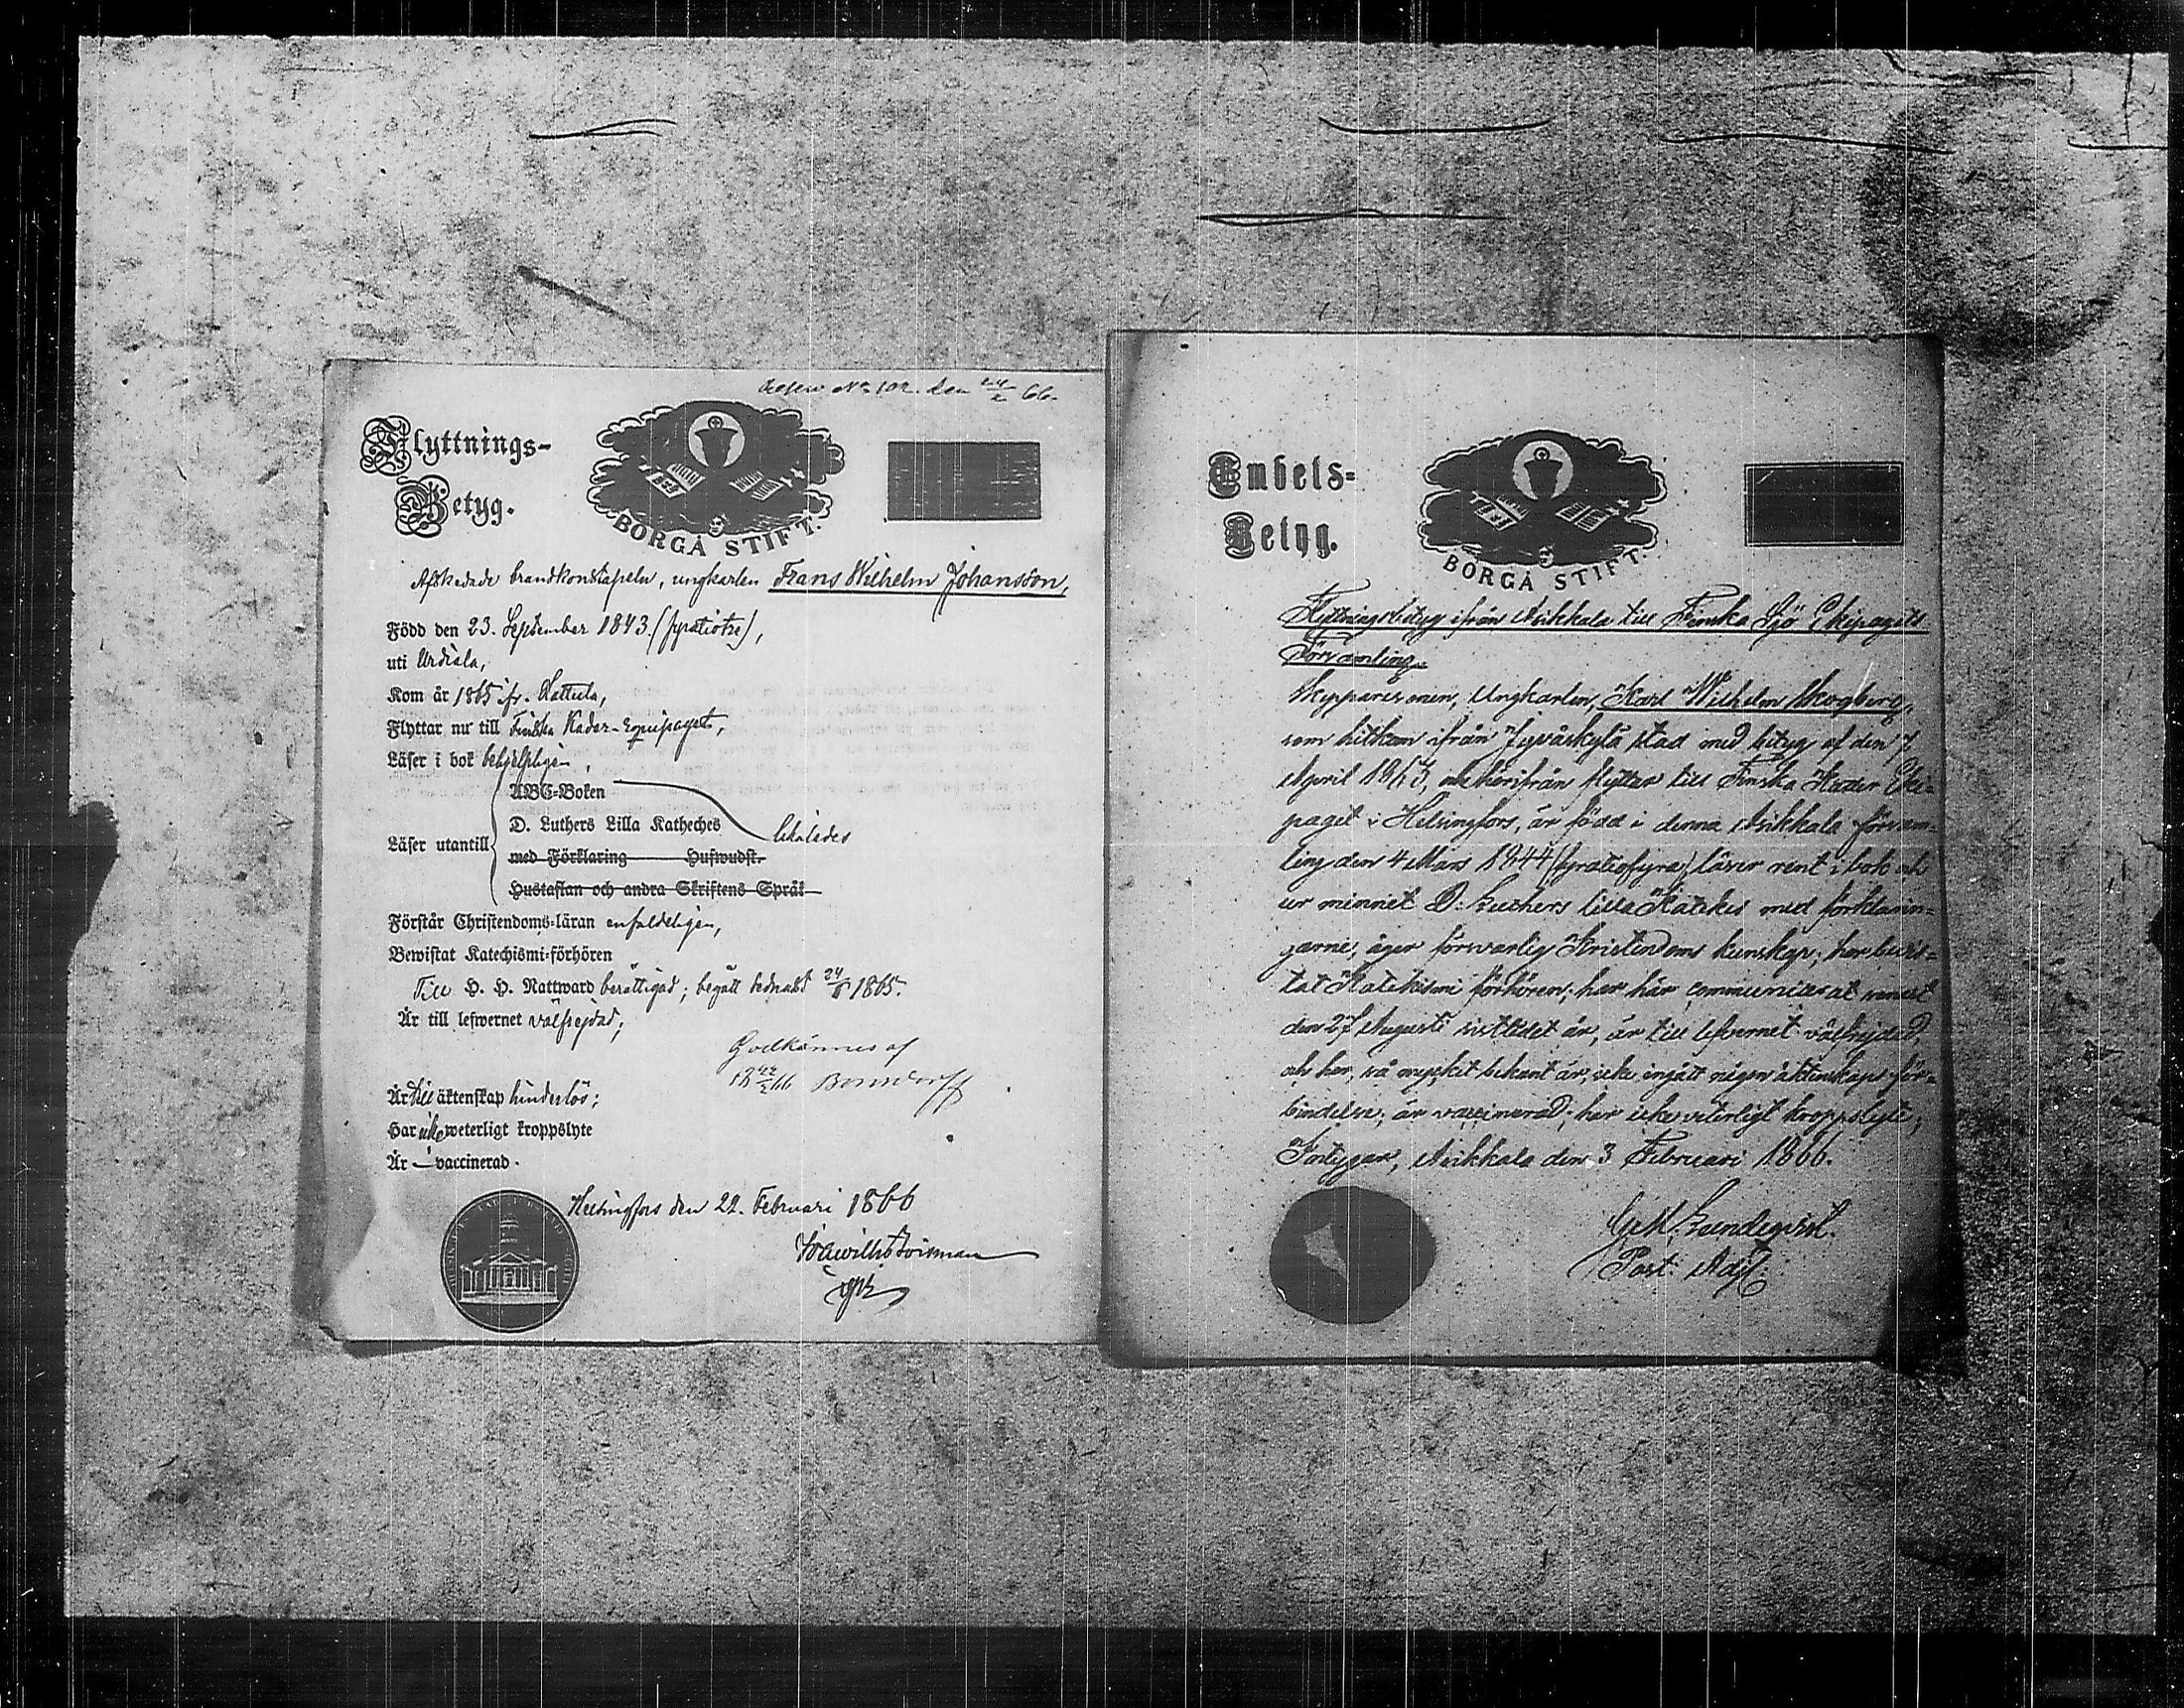 den 24/2 66.
Flyttnings-
Betyg.
BORGÅ STIFT.
Afskedade brandkonstapeln, ungkarlen Frans Wilhelm Johansson,
Född den 23. September 1843. (fyratiotre),
uti Urdiala,
Kom år 1865 ifr. Hattula,
Flyttar nu till Finska Kader-Equipaget,
Läser i bok behjelpligen,
ABC-Boken
D. Luthers Lilla Katheches
Läser utantill
med Förklaring Hufwudst.
Hustaflan och andra Skriftens Språk
Förstår Christendoms-läran enfaldeligen,
Bewistat Katechismi-förhören
Till H. H. Nattward berättigad; begått sednast 1865.
Är till lefwernet välfrejdad;
Godkännes af
Är till äktenskap hinderlös;
Har icke weterligt kroppslyte
Är — vaccinerad.
Helsingfors den 22. Februari 1866
Embets-
Betyg.
BORGÅ STIFT.
Flyttningsbetyg ifrån Asikkala till Finska Sjö Ekipagets
Församling.
Skepparesonen, Ungkarlen, Karl Wilhelm Skogberg,
som hitkom ifrån Jyväskylä stad med betyg af den 7
April 186, och härifrån flyttar till Finska Kader Eki-
paget i Helsingfors, är född i denna Asikkala försam-
ling den 4 Mars 1844 (fyratiofyra), läser rent i bok och
ur minnet D: Luthers lilla Katekes med förklarin-
garne; äger förswarlig Kristendoms kunskap; har bewis-
tat Katekismi förhören; har här communicerat senast
den 27 Augusti sistledet år, är till lefvernet välfrejdad,
och har, så mycket bekant är, icke ingått någon äktenskaps för-
bindelse; är vaccinerad; har icke veterligt kroppslyte;
Intygar, Asikkala den 3 Februari 1866.
Past. Adj.